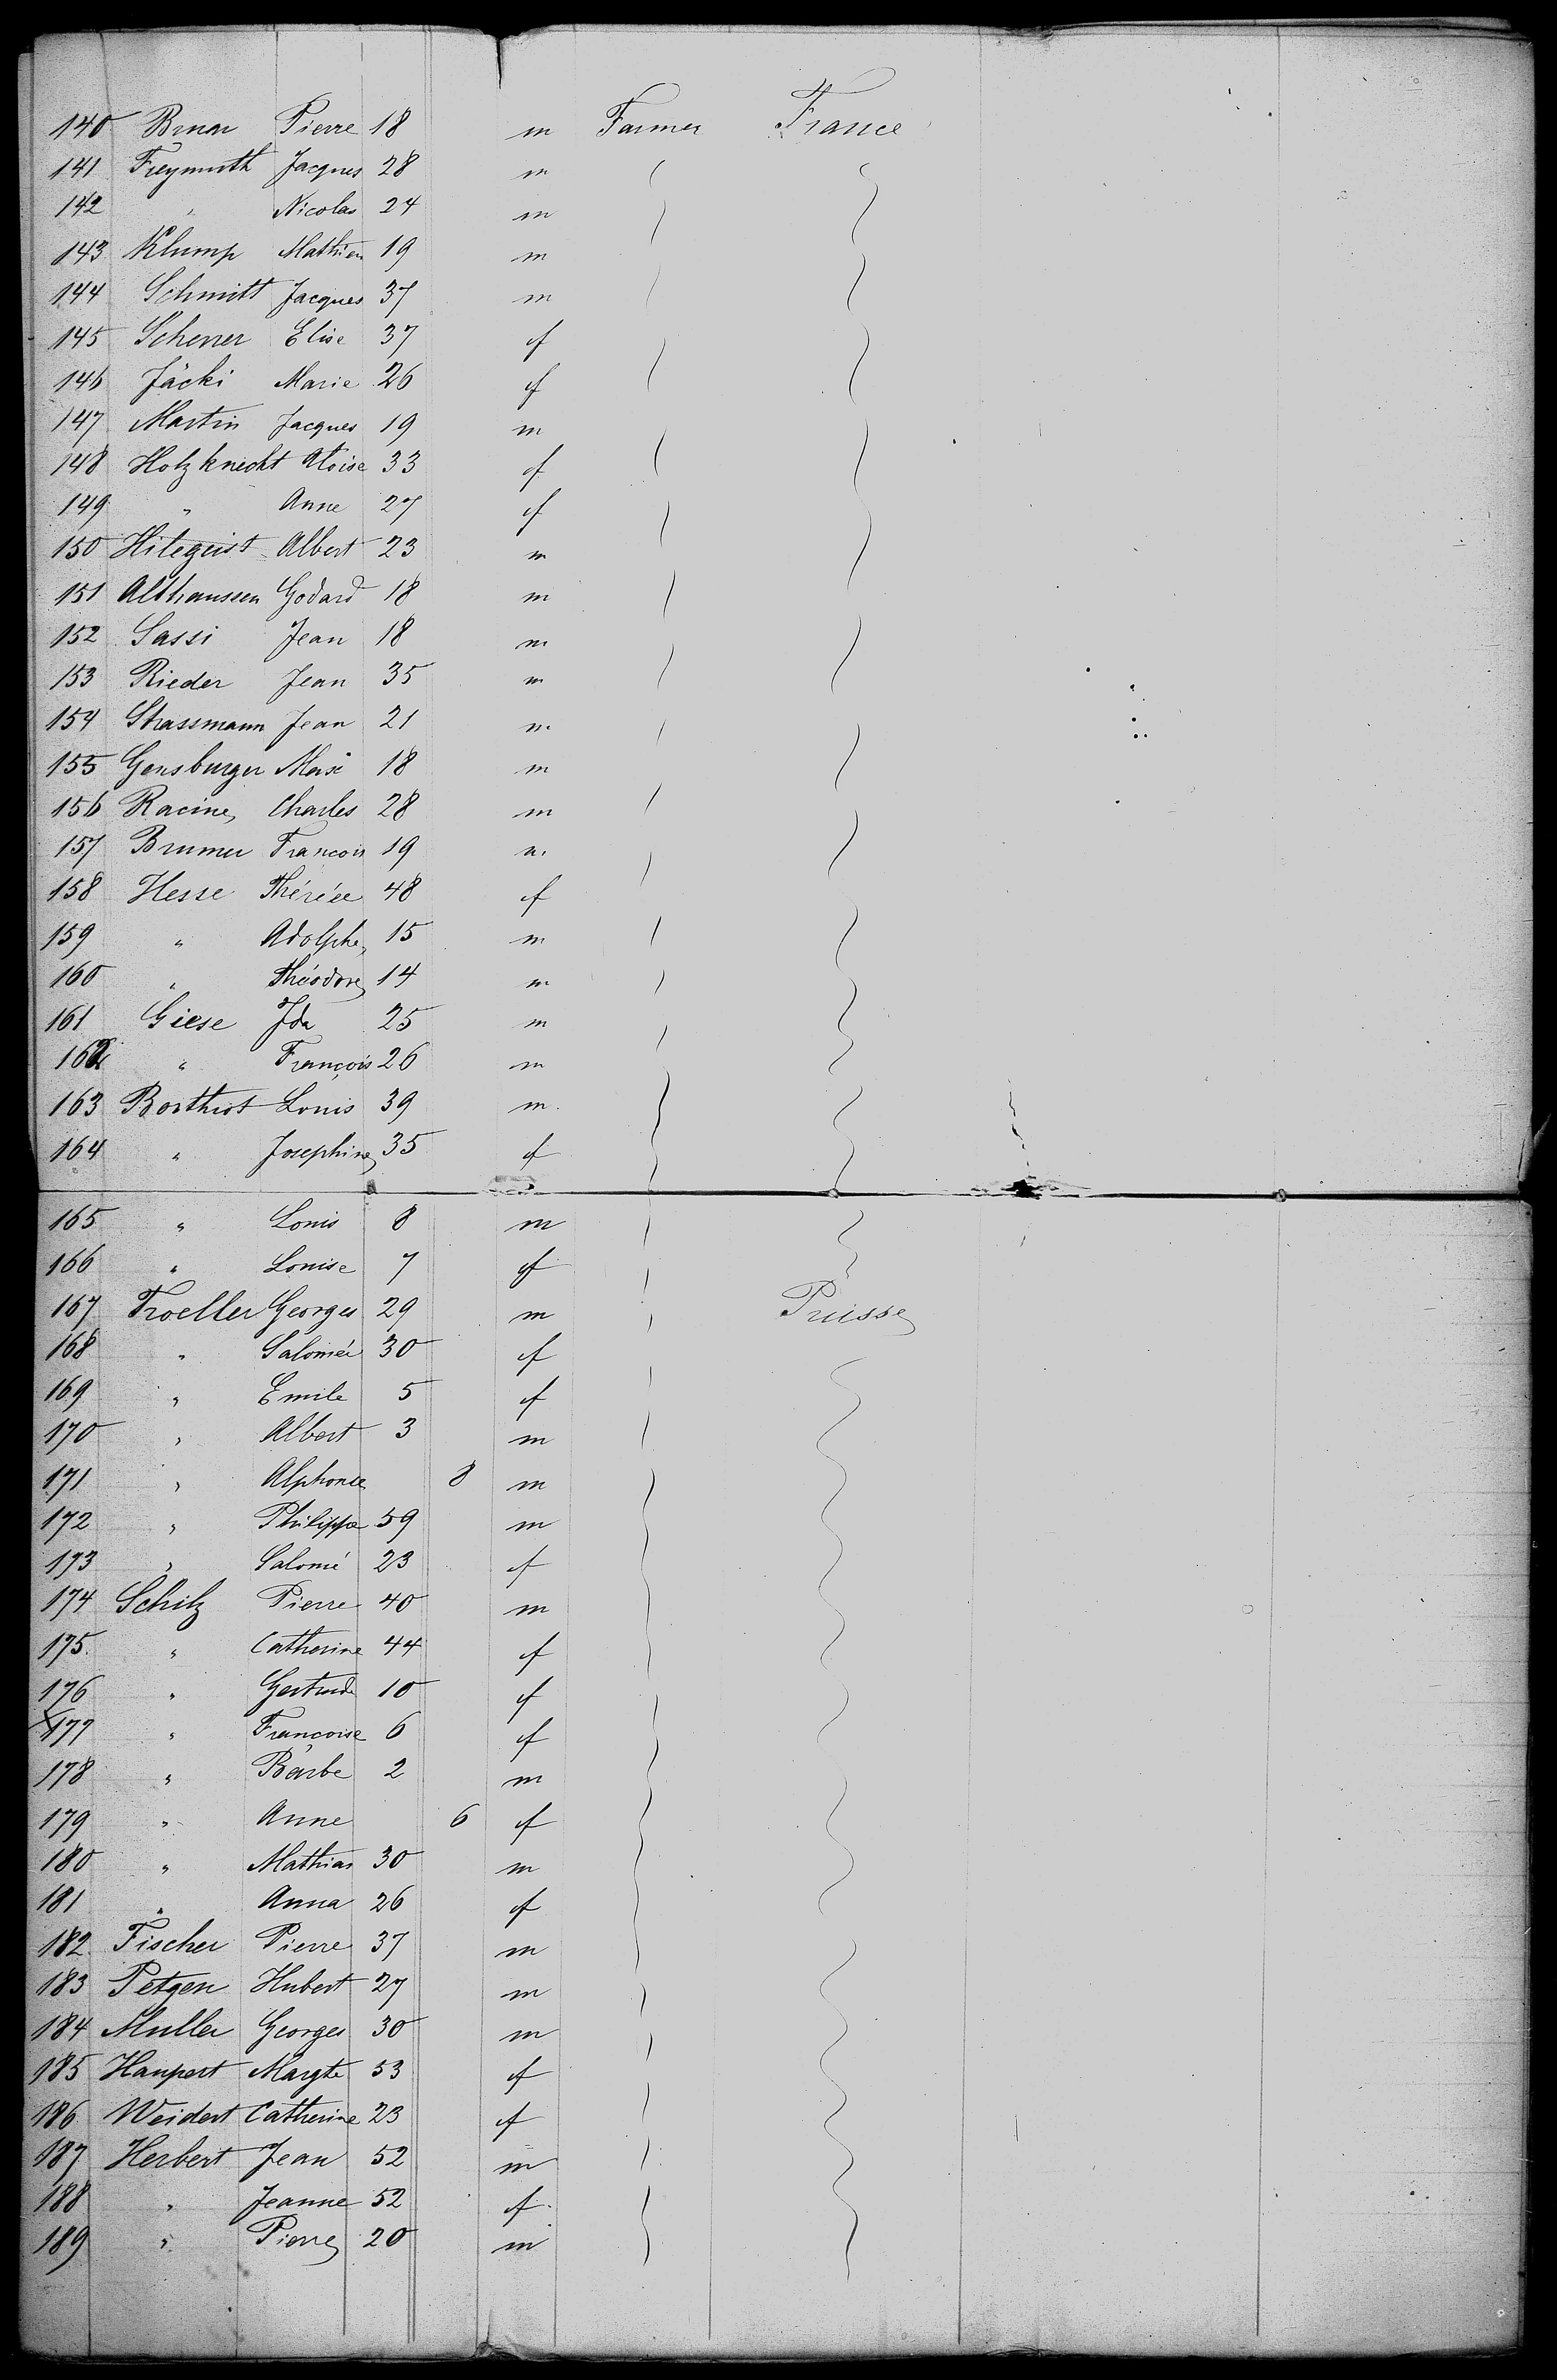 140 Bruar Pierre 18 m Farmer France
141 Freymuth Jacques 28 m
142 " Nicolas 24 m
143 Klump Mathieu 19 m
144 Schmitt Jacques 37 m
145 Scherrer Elise 37 f
146 Jäcki Marie 26 f
147 Martin Jacques 19 m
148 Holzknecht Aloise 33 f
149 " Anne 27 f
150 Hilegeist Albert 23 m
151 Althaussen Godard 18 m
152 Sassi Jean 18 m
153 Rieder Jean 35 m
154 Strassmann Jean 21 m
155 Gensburger 18 m
156 Racine Charles 28 m
157 Brumer Francois 19 m
158 Hesse Thérése 48 f
159 " Adolphe 15 m
160 " Théodore 14 m
161 Giese Ida 25 m
162 " François 26 m
163 Borthiot Louis 39 m
164 " Josephine 35 f
165 " Louis 8 m
166 " Louise 7 f
167 Troeller Georges 29 m Prusse
168 " Salomée 30 f
169 " Emile 5 f
170 " Albert 3 m
171 " Alphonse 8 m
172 " Philippe 59 m
173 " Salomé 23 f
174 Schilz Pierre 40 m
175 " Catherine 44 f
176 " Gertrude 10 f
177 " Françoise 6 f
178 " Barbe 2 m
179 " Anne 6 f
180 " Mathias 30 m
181 " Anna 26 f
182 Fischer Pierre 37 m
183 Petgen Hubert 27 m
184 Muller Georges 30 m
185 Haupert Margte 53 f
186 Weidert Catherine 23 f
187 Herbert Jean 52 m
188 " Jeanne 52 f
189 " Pierre 20 m